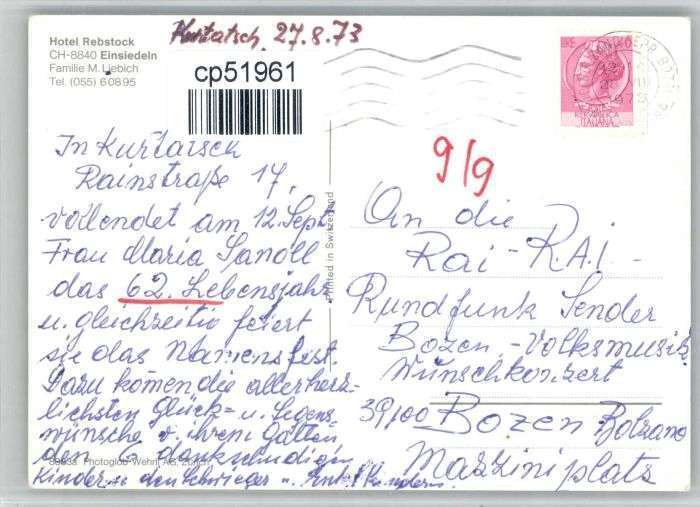 Kurtatsch. 27.8.73
Hotel Rebstock
CH-8840 Einsiedeln
Familie M. Liebich
Tel. (055) 6 08 95
cp51961
REPUBBLICA
ITALIANA
9/9
In Kurtatsch
Rainstraße 17,
vollendet am 12. Sept.
Frau Maria Sanoll
das 62. Lebensjahr
u. gleichzeitig feiert
sie das Namensfest.
Dazu komen die allerherz-
lichsten Glück- u. Segens
wünsche v. ihrem Gatten
den 6 dankschuldigen
Kindern u. den
Printed in Switzerland
Photoglob-Wehrli AG, Zürich
An die
Rai - R.A.I -
Rundfunk Sender
Bozen - Volksmusik
Wünschkonzert
39100 Bozen Bolzano
Mazziniplatz